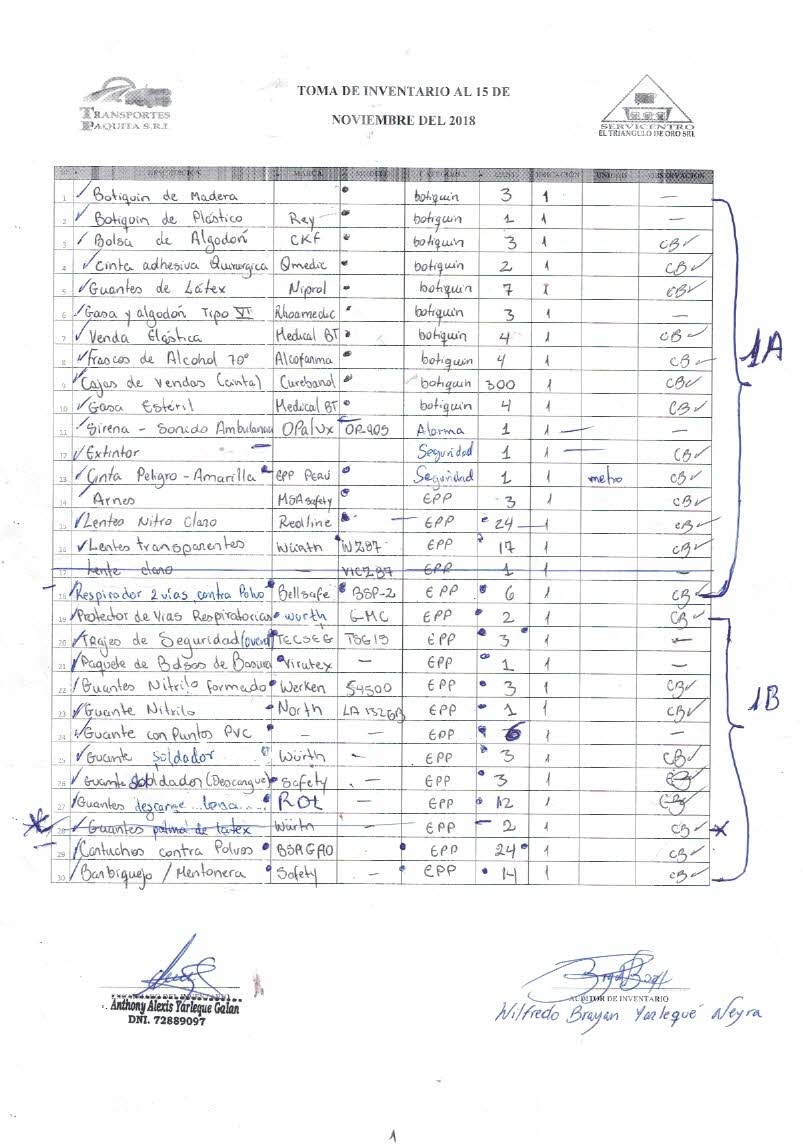 TRANSPORTES
PAQUITA S.R.L
TOMA DE INVENTARIO AL 15 DE
NOVIEMBRE DEL 2018
SERVICENTRO
EL TRIANGULO DE ORO SRL
DESCRIPCION MARCA MODELO CATEGORIA CANT. UBICACIÓN UNIDAD OBSERVACION
1 ✓ Botiquin de Madera botiquin 3 1 —
2 ✓ Botiquin de Plástico Rey botiquin 1 1 —
3 ✓ Bolsa de Algodón CKF botiquin 3 1 CB✓
4 ✓ Cinta adhesiva Quirurgica Qmedic botiquin 2 1 CB✓
5 ✓ Guantes de Látex Niprol botiquin 7 1 CB✓
6 ✓ Gasa y algodón Tipo VI Rhoamedic botiquin 3 1 —
7 ✓ Venda Elástica Medical BT botiquin 4 1 CB✓
8 ✓ Frascos de Alcohol 70° Alcofarma botiquin 4 1 CB✓
9 ✓ Cajas de Vendas (cinta) Curebanol botiquin 300 1 CB✓
10 ✓ Gasa Estéril Medical BT botiquin 4 1 CB✓
11 ✓ Sirena - Sonido Ambulancia OPalux OP-909 Alarma 1 1 — —
12 ✓ Extintor — Seguridad 1 1 — CB✓
13 ✓ Cinta Peligro - Amarilla EPP PERÚ Seguridad 1 1 metro CB✓
14 ✓ Arnes MSAsafety EPP 3 1 CB✓
1A
15 ✓ Lentes Nitro Claro Redline — EPP 24 — 1 CB✓
16 ✓ Lentes transparentes Würth WZ87 EPP 17 1 CB✓
17 Lente claro — VICZ87 EPP 1 1 —
18 ✓ Respirador 2 vias contra Polvo Bellsafe BSP-2 EPP 6 1 CB✓
19 ✓ Protector de Vias Respiratorias wurth GMC EPP 2 1 CB✓
20 ✓ Trajes de Seguridad (overol TECSEG TSG15 EPP 3 1 —
21 ✓ Paquete de Bolsas de Basura Virutex — EPP 1 1 —
22 ✓ Guantes Nitrilo Formado Werken 54500 EPP 3 1 CB✓
23 ✓ Guante Nitrilo North EPP 1 1 CB✓
1B
24 ✓ Guante con Puntos PVC — — EPP 6 1 —
25 ✓ Guante soldador Würth — EPP 3 1 CB✓
26 ✓ Guante Soldador (Descargue) Safety — EPP 3 1 CB
27 ✓ Guantes descarge lona ROL — EPP 12 1 CB
28 ✓ Guantes palma de latex Würth — EPP 2 1 CB✓
29 ✓ Cartuchos contra Polvos EPP 24 1 CB✓
30 ✓ Barbiquejo / Mentonera Safety — EPP 14 1 CB✓
Anthony Alexis Yarleque Galan
DNI. 72889097
AUDITOR DE INVENTARIO
Wilfredo Brayan Yarlequé Neyra
1